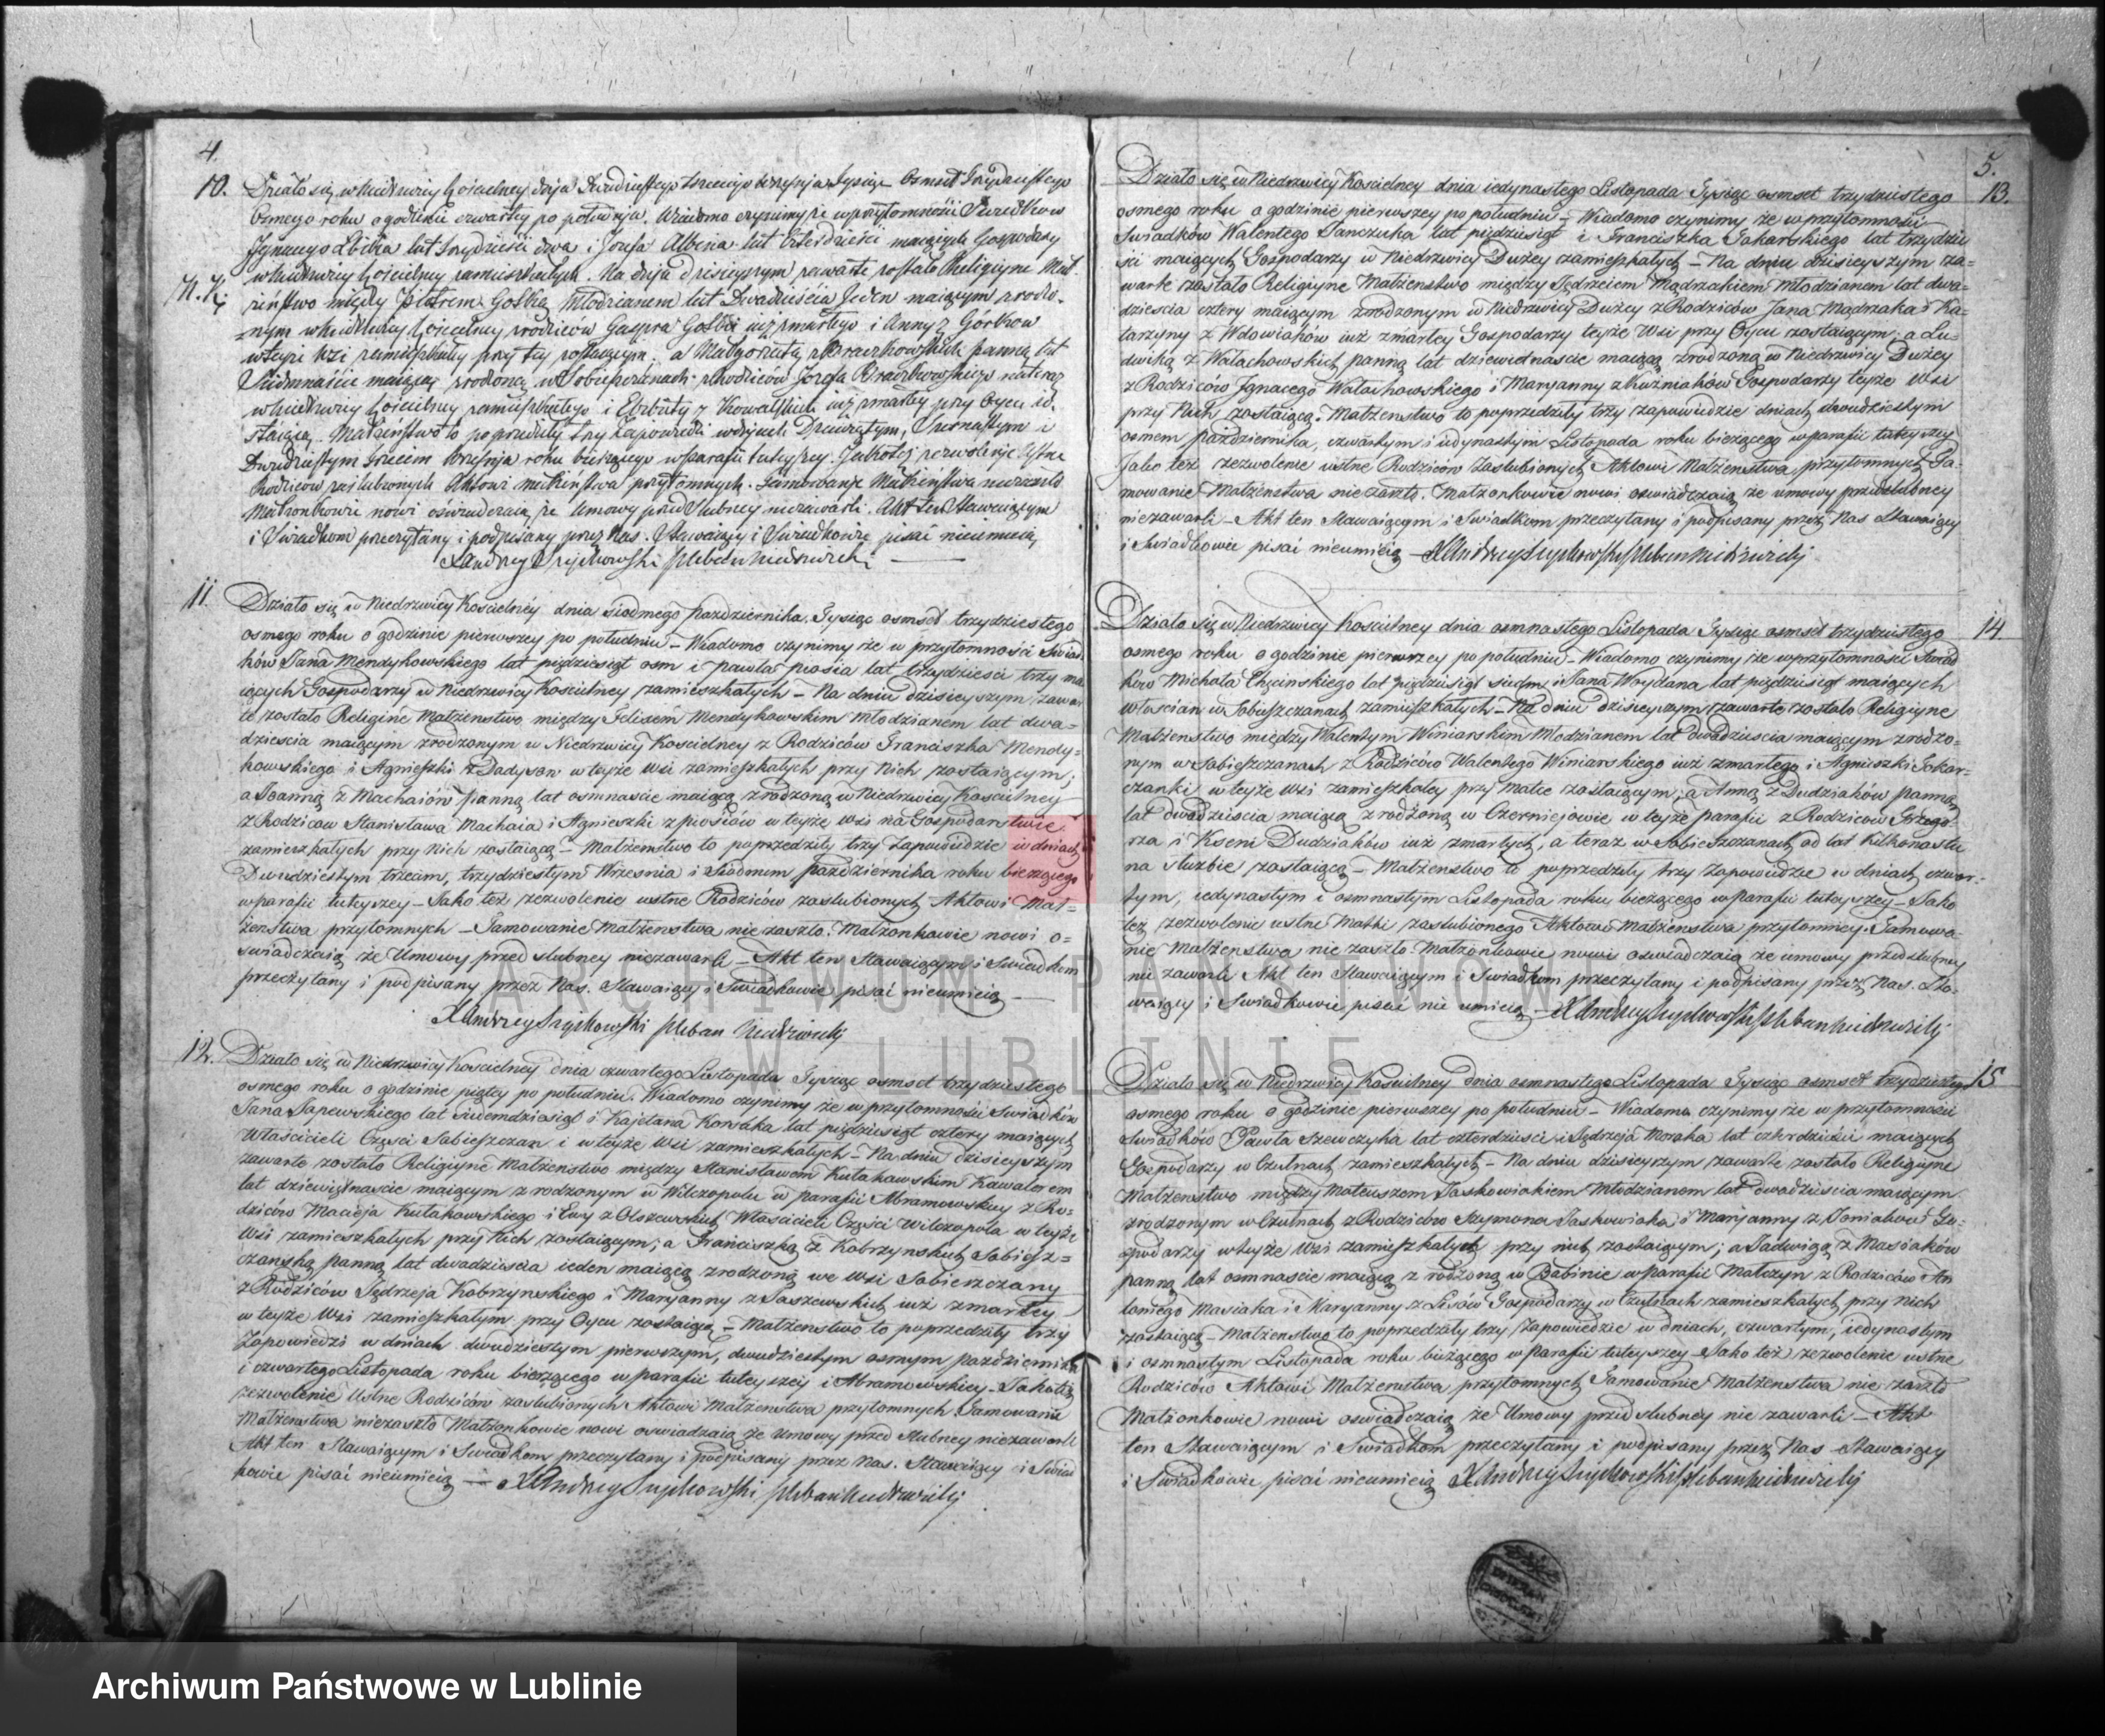 4.
10. Działo się w Niedrzwicy Kościelney dnia Dwudziestego trzeciego Września Tysiąc Osmset Trzydziestego
Osmego roku o godzinie czwartey po południu. Wiadomo czynimy że w przytomności Świadków
Ignacego lat trzydzieści dwa i Józefa Albina lat Czterdzieści maiących Gospodarzy
w Niedrzwicy Kościelney zamieszkałych. Na dniu dzisieyszym zawarte zostało Religiyne Mał-
żeństwo między Piotrem Golbą Młodzianem lat Dwadzieścia Jeden maiącym zrodzo-
nym w Niedrzwicy Kościelney z rodziców Gaspra Golbów już zmarłego i Anny z Górków
w teyże Wsi zamieszkałey przy tey zostaiącym. a Małgorzatą z panną lat
Siedmnaście maiącą zrodzoną w Sobieszczanach z Rodziców Józefa
w Niedrzwicy Kościelney zamieszkałego i Elżbiety z Kowalskich już zmarłey przy Oycu zo-
staiącą. Małżeństwo to poprzedziły trzy zapowiedzi w dniach Dziewiątym, Szesnastym i
Dwudziestym trzecim Września roku bieżącego w parafii tuteyszey. Jako też zezwolenie Ustne
Rodziców zaślubionych Aktowi małżeństwa przytomnych. Tamowanie Małżeństwa niezaszło
Małżonkowie nowi oświadczaią że Umowy przed Slubney niezawarli. Akt ten Stawaiącym
i Świadkom przeczytany i podpisany przez Nas. Stawaiący i Świadkowie pisać nieumieią.
X Andrzey Pleban Niedrzwicki
11. Działo się w Niedrzwicy Kościelney dnia siodmego Października Tysiąc osmset trzydziestego
osmego roku o godzinie pierwszey po południu – Wiadomo czynimy że w przytomności Świad-
ków Jana Mendykowskiego lat pięćdziesiąt osm i Pawła Piosia lat trzydzieści trzy ma-
iących Gospodarzy w Niedrzwicy Kościelney zamieszkałych – Na dniu dzisieyszym zawar-
te zostało Religine Małżenstwo między Felixem Mendykowskim Młodzianem lat dwa-
dziescia maiącym zrodzonym w Niedrzwicy Kościelney z Rodziców Franciszka Mendy-
kowskiego i Agnieszki z Dadysow w teyże wsi zamieszkałych przy Nich zostaiącym;
a Joanną z Machaiow Panną lat osmnascie maiącą zrodzoną w Niedrzwicy Kościelney
z Rodzicow Stanisława Machaia i Agnieszki z Piosiow w teyże wsi na Gospodarstwie
zamieszkałych przy Nich zostaiącą – Małżenstwo to poprzedziły trzy Zapowiedzie w dniach
Dwudziestym trzecim, trzydziestym Wrzesnia i Siódmem Października roku bieżącego
w parafii tuteyszey – Jako też zezwolenie ustne Rodziców zaslubionych Aktowi Mał-
żenstwa przytomnych – Tamowanie Małżenstwa nie zaszło. Małzonkowie nowi o-
swiadczaią że Umowy przed slubney niezawarli – Akt ten Stawaiącym i Swiadkom
przeczytany i podpisany przez Nas. Stawaiący i Swiadkowie pisać nieumieią –
X Andrzey Pleban Niedrzwicki
12. Działo się w Niedrzwicy Kościelney dnia czwartego Listopada Tysiąc osmset trzydziestego
osmego roku o godzinie piątey po południu. Wiadomo czynimy że w przytomności Swiadków
Jana Sapewskiego lat siedemdziesiąt i Kajetana Kowaka lat pięćdziesiąt cztery maiących
Właścicieli Części Sobieszczan i w teyże wsi zamieszkałych – Na dniu dzisieyszym
zawarte zostało Religiyne Małżenstwo między Stanisławem Kułakowskim Kawalerem
lat dziewiętnascie maiącym zrodzonym w Wilczopolu w parafii Abramowskiey z Ro-
dziców Macieja Kułakowskiego i Ewy z Olszewskich Właścicieli Części Wilczopola w teyże
Wsi zamieszkałych przy Nich zostaiącym; a Franciszką z Kobrzynskich Sobiesz-
czanską panną lat dwadzieścia ieden maiącą zrodzoną we wsi Sobieszczany
z Rodziców Jędrzeja Kobrzynskiego i Maryanny z Saszewskich już zmarłey
w teyże wsi zamieszkałym przy Oycu zostaiącą – Małżenstwo to poprzedziły trzy
Zapowiedzi w dniach dwudziestym pierwszym, dwudziestym osmym Października
i czwartego Listopada roku bieżącego w parafii tuteyszey i Abramowskiey – Jako też
zezwolenie Ustne Rodziców zaslubionych Aktowi Małżenstwa przytomnych Tamowanie
Małżenstwa niezaszło Małżonkowie nowi oswiadczaią że Umowy przed slubney niezawarli
Akt ten Stawaiącym i Swiadkom przeczytany i podpisany przez Nas. Stawaiący i Swiad-
kowie pisać nieumieią – X Andrzey Pleban Niedrzwicki
5.
13. Działo się w Niedrzwicy Kościelney dnia iedynastego Listopada Tysiąc osmset trzydziestego
osmego roku o godzinie pierwszey po południu – Wiadomo czynimy że w przytomności
Swiadków Walentego Janczuka lat pięćdziesiąt i Franciszka Tokarskiego lat trzydzie-
ści maiących Gospodarzy w Niedrzwicy Dużey zamieszkałych – Na dniu dzisieyszym za-
warte zostało Religiyne Małżenstwo między Jędrzeiem Mądrzakiem Młodzianem lat dwa-
dziescia cztery maiącym zrodzonym w Niedrzwicy Dużey z Rodziców Jana Mądrzaka i Ka-
tarzyny z Wdowiaków już zmarłey Gospodarzy teyże Wsi przy Oycu zostaiącym; a Lu-
dwiką z Wałachowskich panną lat dziewiętnascie maiącą zrodzoną w Niedrzwicy Dużey
z Rodziców Ignacego Wałachowskiego i Maryanny z Kuźmiaków Gospodarzy teyże Wsi
przy Nich zostaiącą. Małżenstwo to poprzedziły trzy zapowiedzie dniach dwudziestym
osmem Października, czwartym i iedynastym Listopada roku bieżącego w parafii tuteyszey
Jako też zezwolenie ustne Rodziców Zaslubionych Aktowi Małżenstwa przytomnych Ta-
mowanie Małżenstwa nie zaszło. Małzonkowie nowi oswiadczaią że umowy przedslubney
niezawarli – Akt ten Stawaiącym i Swiadkom przeczytany i podpisany przez Nas Stawaiący
i Swiadkowie pisać nieumieią – X Andrzey Pleban Niedrzwicki
14. Działo się w Niedrzwicy Kościelney dnia osmnastego Listopada Tysiąc osmset trzydziestego
osmego roku o godzinie pierwszey po południu – Wiadomo czynimy że w przytomności Swiad-
ków Michała Chęcinskiego lat pięćdziesiąt siedm i Jana Woydana lat pięćdziesiąt maiących
Włoscian w Sobieszczanach zamieszkałych – Na dniu dzisieyszym zawarte zostało Religiyne
Małżenstwo między Walentym Winiarskim Młodzianem lat dwadziescia maiącym zrodzo-
nym w Sobieszczanach z Rodziców Walentego Winiarskiego już zmarłego i Agnieszki Tokar-
czanki w teyże wsi zamieszkałey przy Matce zostaiącym; a Anną z Dudziaków panną
lat dwadziescia maiącą zrodzoną w Czerniejowie w teyże parafii z Rodziców Grzego-
rza i Kseni Dudziaków już zmarłych, a teraz w Sobieszczanach od lat kilkonastu
na służbie zostaiącą – Małżenstwo to poprzedziły trzy Zapowiedzie w dniach czwar-
tym, iedynastym i osmnastym Listopada roku bieżącego w parafii tuteyszey – Jako
też zezwolenie ustne Matki zaslubionego Aktowi Małżenstwa przytomney. Tamowa-
nie Małżenstwa nie zaszło. Małzonkowie nowi oswiadczaią że umowy przedslubney
nie zawarli Akt ten Stawaiącym i Swiadkom przeczytany i podpisany przez Nas. Sta-
waiący i Swiadkowie pisać nie umieią – X Andrzey Pleban Niedrzwicki
15. Działo się w Niedrzwicy Kościelney dnia osmnastego Listopada Tysiąc osmset trzydziestego
osmego roku o godzinie pierwszey po południu – Wiadomo czynimy że w przytomności
Swiadków Pawła Szewczyka lat czterdzieści i Jędrzeja Noraka lat czterdzieści maiących
Gospodarzy w Czułnach zamieszkałych – Na dniu dzisieyszym zawarte zostało Religiyne
Małżenstwo między Mateuszem Jaskowiakiem Młodzianem lat dwadziescia maiącym
zrodzonym w Czułnach z Rodziców Szymona Jaskowiaka i Maryanny z Go-
spodarzy w teyże wsi zamieszkałych przy nich zostaiącym; a Jadwigą z Masiaków
panną lat osmnascie maiącą zrodzoną w Babinie w parafii Matczyn z Rodziców An-
toniego Masiaka i Maryanny z Lisów Gospodarzy w Czułnach zamieszkałych przy Nich
zostaiącą – Małżenstwo to poprzedziły trzy Zapowiedzie w dniach, czwartym, iedynastym
i osmnastym Listopada roku bieżącego w parafii tuteyszey – Jako też zezwolenie ustne
Rodziców Aktowi Małżenstwa przytomnych Tamowanie Małżenstwa nie zaszło
Małżonkowie nowi oswiadczaią że Umowy przedslubney nie zawarli – Akt
ten Stawaiącym i Swiadkom przeczytany i podpisany przez Nas Stawaiący
i Swiadkowie pisać nieumieią X Andrzey Pleban Niedrzwicki
ARCHIWUM PAŃSTWOWE
W LUBLINIE
Archiwum Państwowe w Lublinie